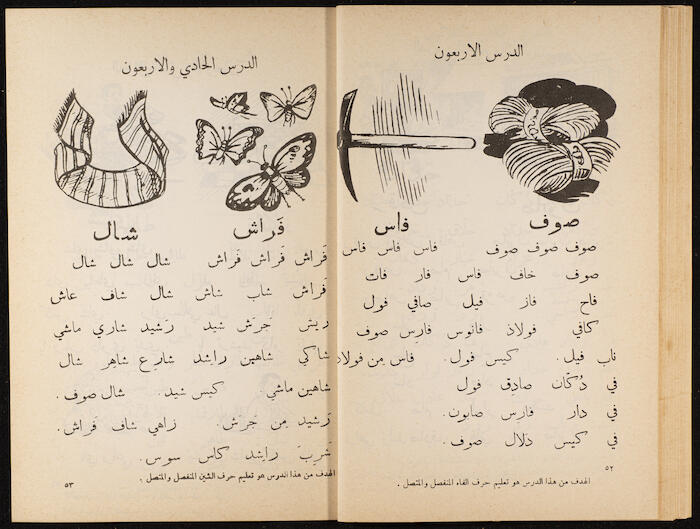 الدرس الاربعون
صوف فاس
صوف صوف صوف فاس فاس فاس
صوف خاف فاس فار فات
فاح فاز فيل صافي فول
كافي فولاذ فانوس فارس صوف
ناب فيل. كيس فول. فاس مِن فولاذ
في دُكّان صادِق فول
في دار فارِس صابون.
في كيس دلال صوف.
٥٢
الهدف من هذا الدرس هو تعليم حرف الفاء المنفصل والمتصل.
الدرس الحادي والاربعون
فَراش شال
فَراش فَراش فَراش شال شال شال
فَراش شاب شاش شال شاف عاش
ريش جَرَش شيد رَشيد شاري ماشي
شاكي شاهين راشد شارع شاهِر شال
شاهين ماشي. كيس شيد. شال صوف.
رَشيد مِن جَرَش. زاهي شاف فَراش.
شَرِبَ راشِد كاس سوس.
الهدف من هذا الدرس هو تعليم حرف الشين المنفصل والمتصل.
٥٣